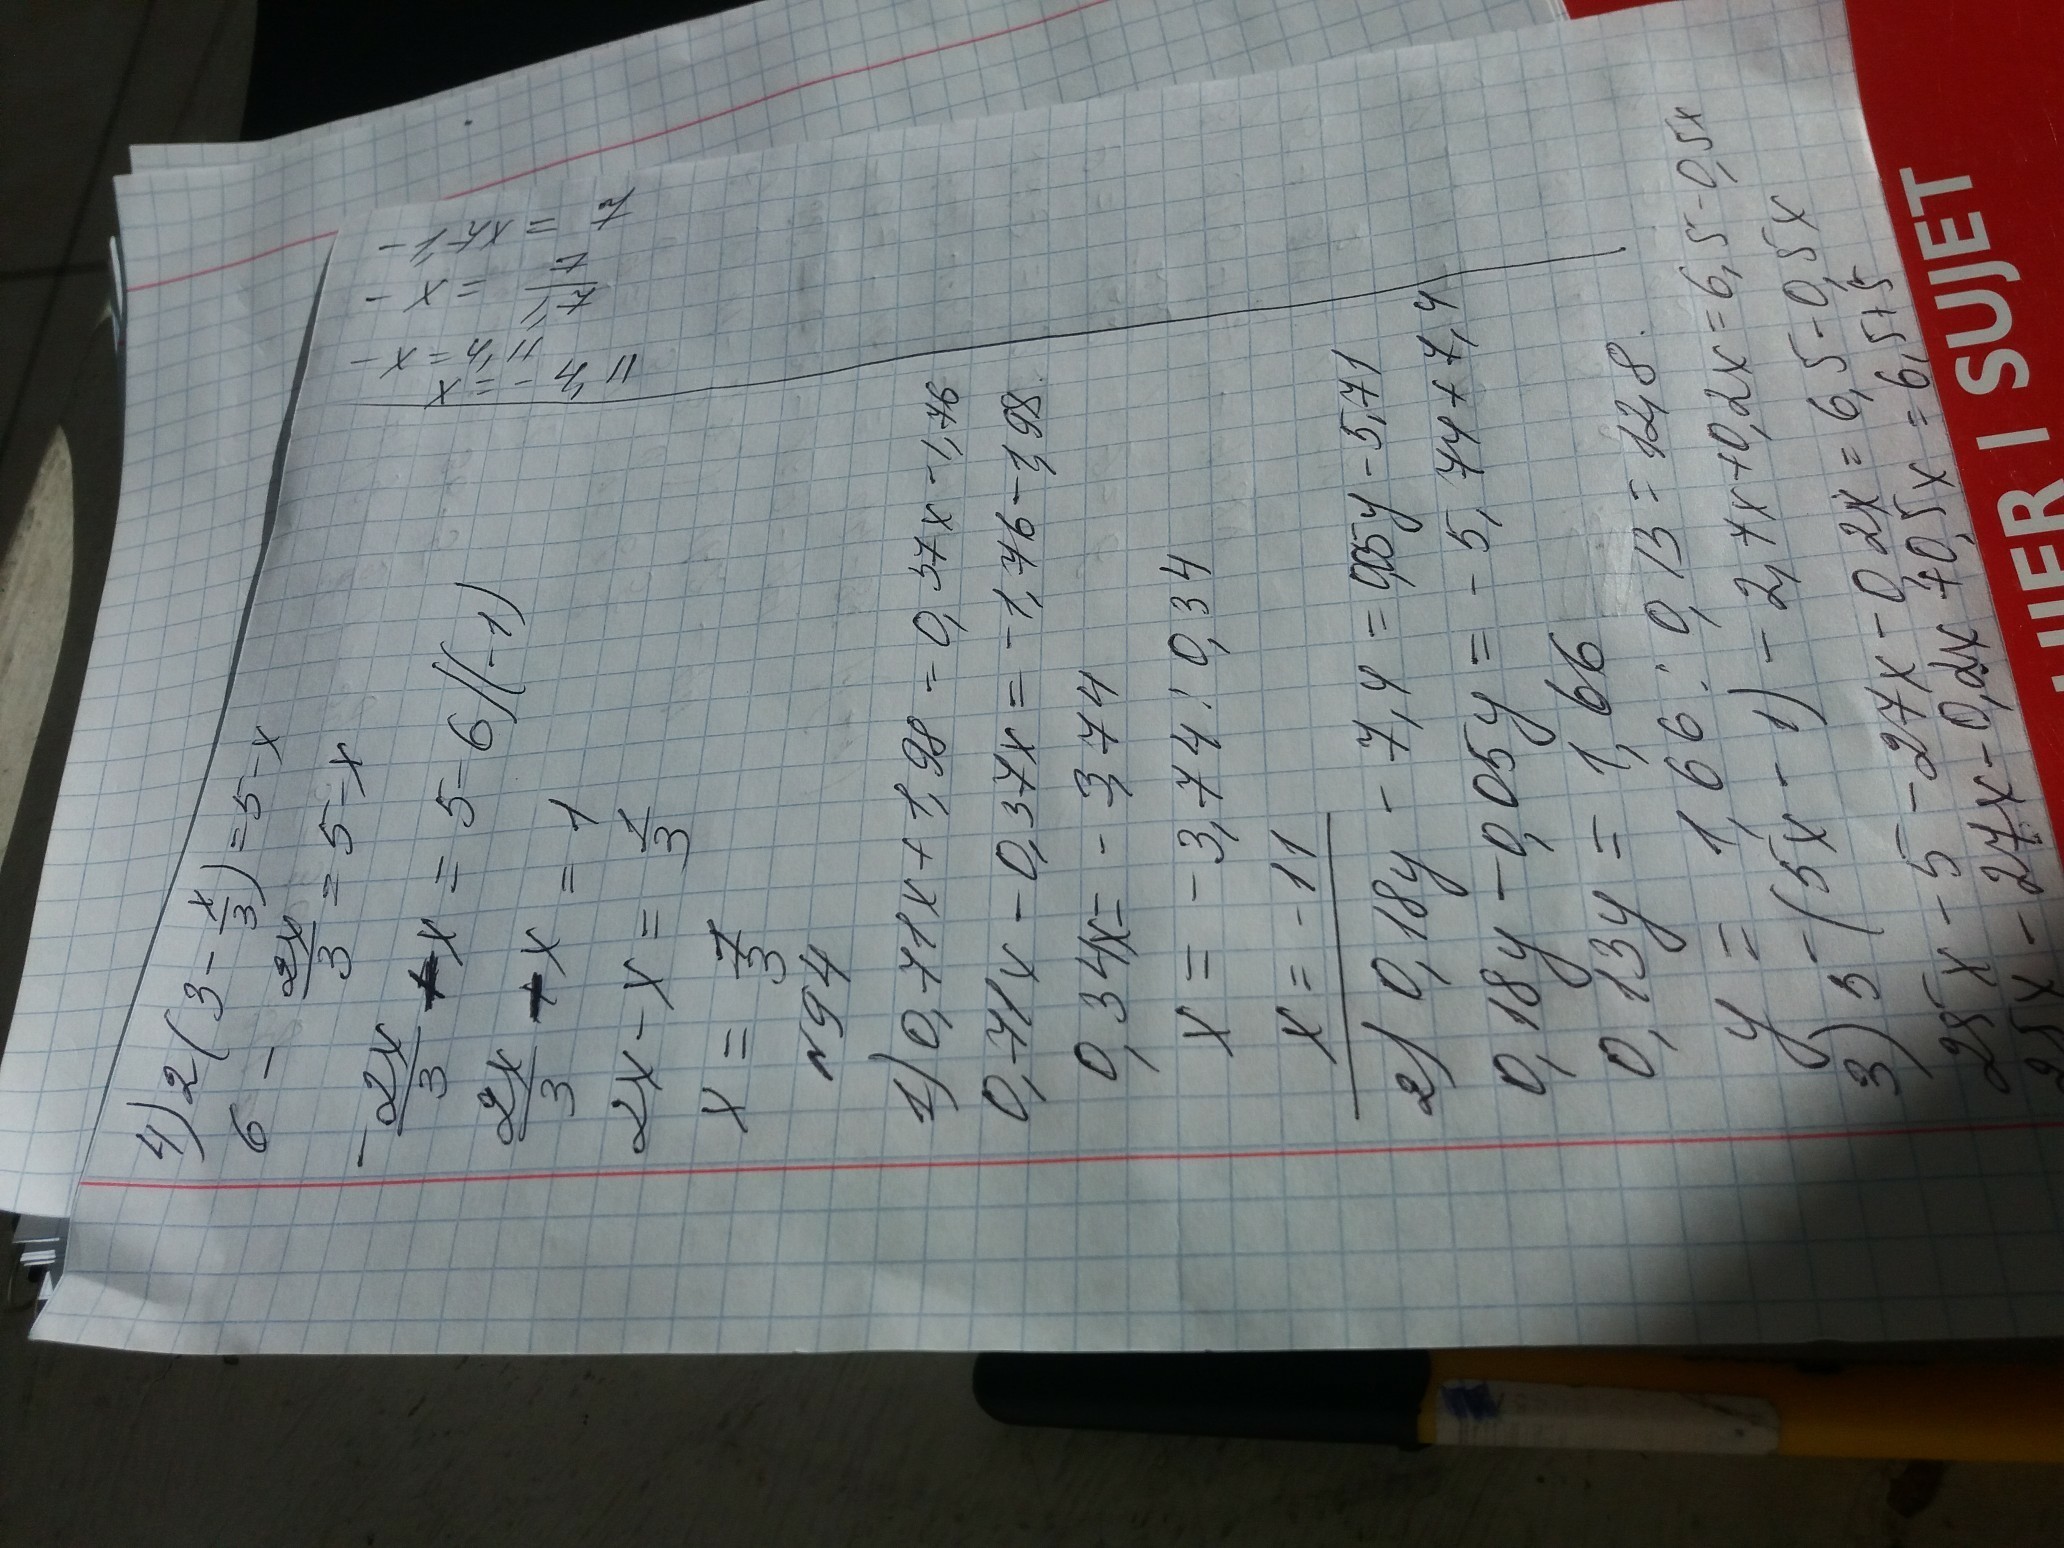 4) 2(3 - x/3) = 5 - x
6 - 2x/3 = 5 - x
- 2x/3 - x = 5 - 6 |(-1)
2x/3 - x = 1
2x - x = 1/3
x = 7/3
N94
1) 0,71x + 1,98 = 0,37x - 1,76
0,71x - 0,37x = -1,76 - 1,98
0,34x = - 3,74
x = -3,74 : 0,34
x = -11
2) 0,18y - 7,4 = 0,05y - 5,71
0,18y - 0,05y = -5,74y + 7,4
0,13y = 1,66
y = 1,66 : 0,13 = 12,8.
3) 5 (5x - 1) - 2,7x + 0,2x = 6,5 - 0,5x
25x - 5 - 27x - 0,2x = 6,5 - 0,5x
25x - 27x - 0,2x + 0,5x = 6,5 + 5
-1,7x = 7
-x =
-x = 4,11
x = -4,11
I SUJET